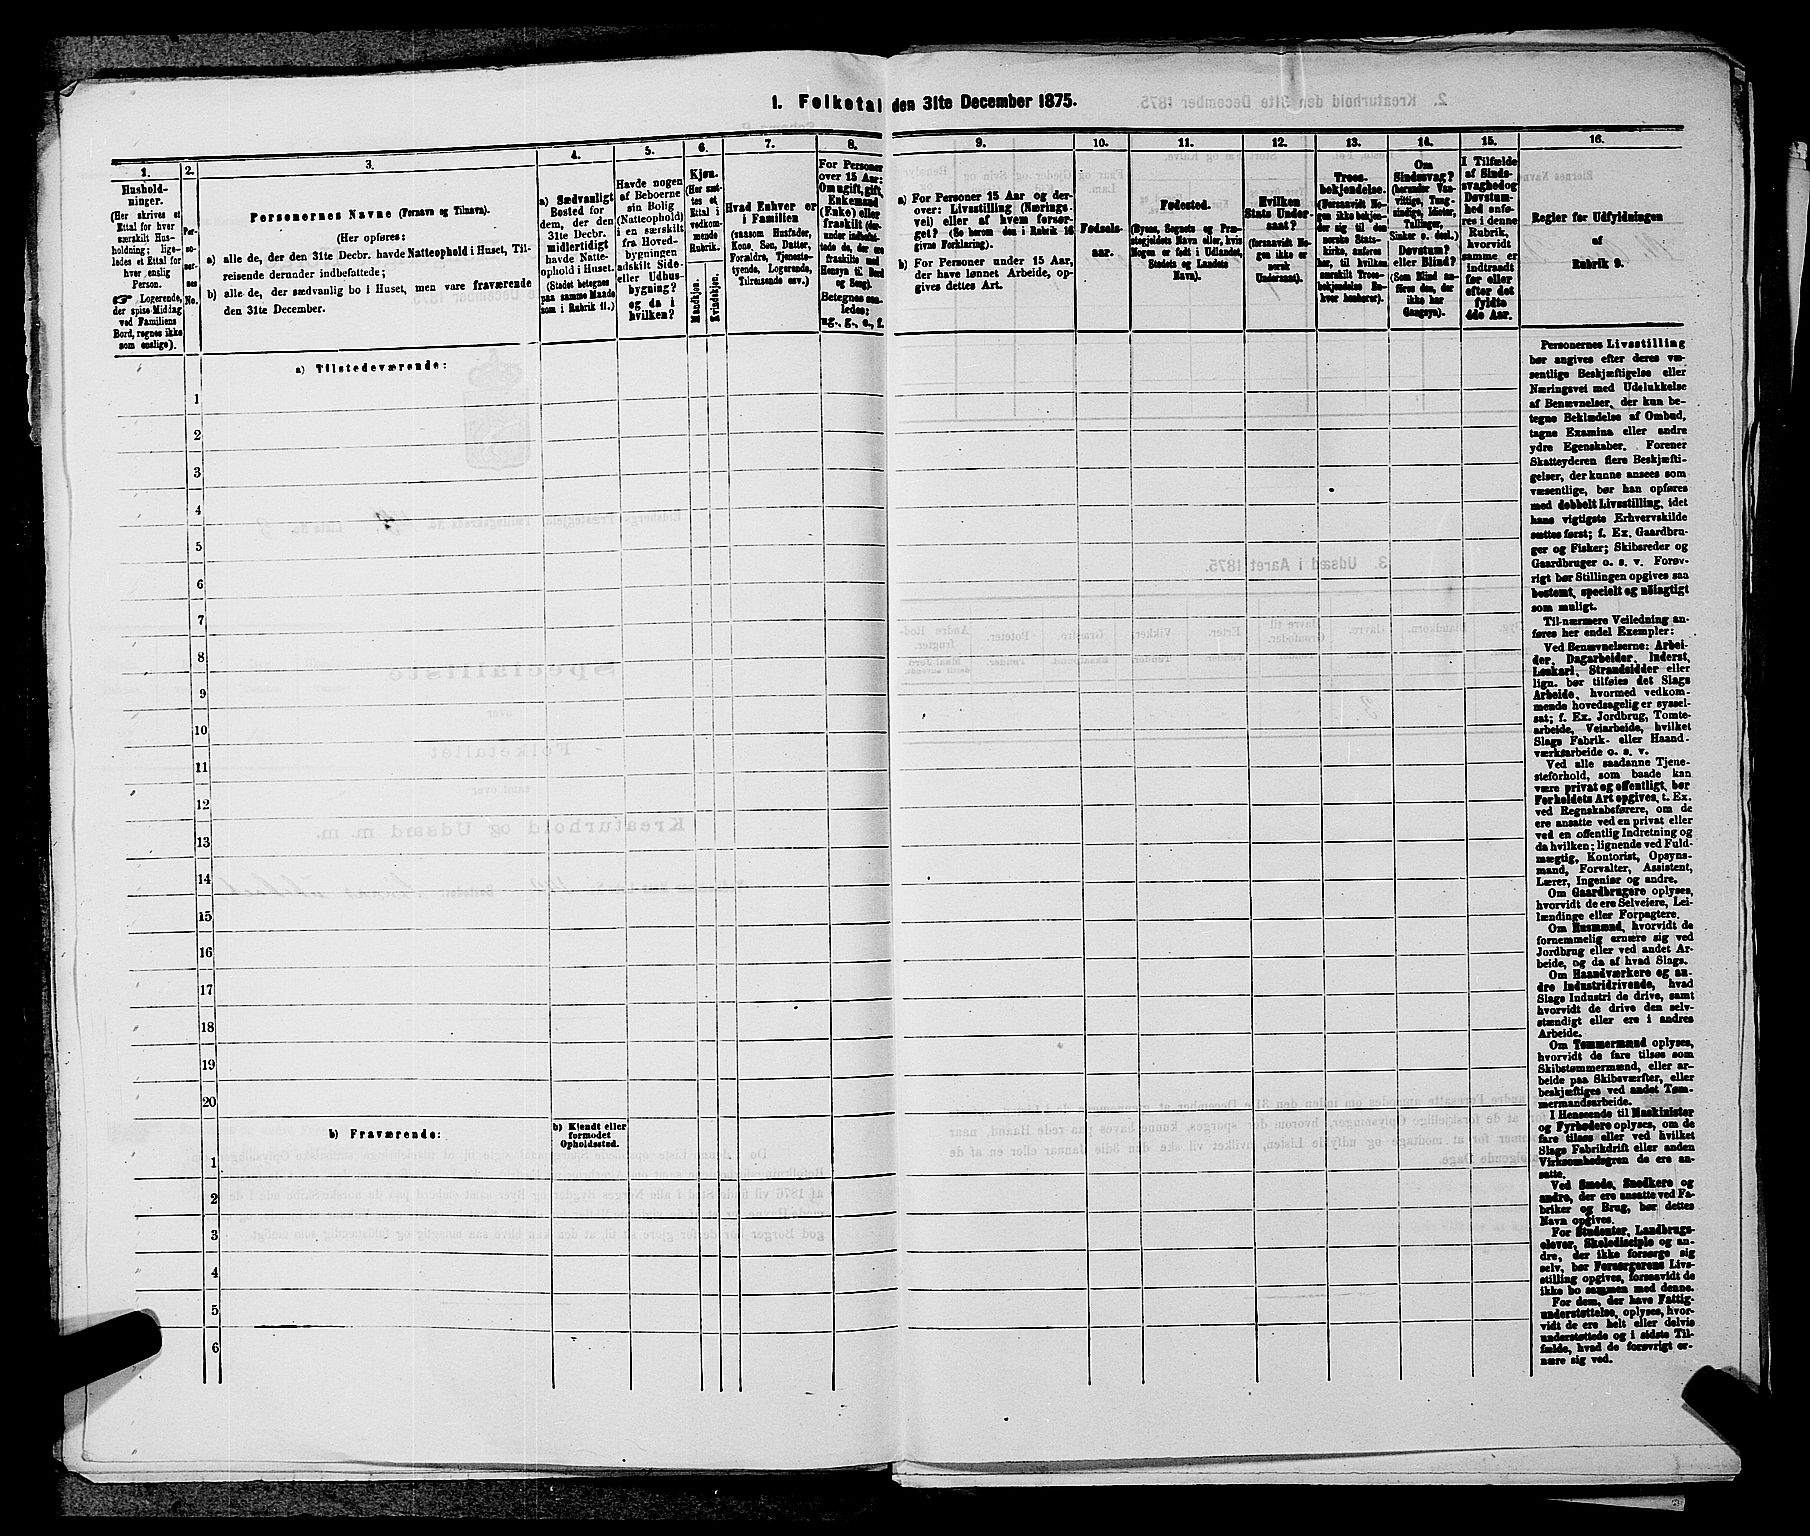 1. Folketal den 31te December 1875.
1.
2.
3.
4.
5.
6.
7.
8.
9.
10.
11.
12.
13.
14.
15.
16.
Hushold-
ninger.
(Her skrives et
Ettal for hver
særskilt Hus-
holdning; lige-
ledes et Ettal for
hver enslig
Person.
☞ Logerende,
der spise Middag
ved Familiens
Bord, regnes ikke
som enslige).
Per-
so-
ner-
nes
No.
Personernes Navne (Fornavn og Tilnavn).
(Her opføres:
a) alle de, der den 31te Decbr. havde Natteophold i Huset, Til-
reisende derunder indbefattede;
b) alle de, der sædvanlig bo i Huset, men vare fraværende
den 31te December.
a) Sædvanligt
Bosted for
dem, der den
31te Decbr.
midlertidigt
havde Natte-
ophold i Huset.
(Stedet betegnes
paa samme Maade
som i Rubrik 11.)
Havde nogen
af Beboerne
sin Bolig
(Natteophold)
i en særskilt
fra Hoved-
bygningen
adskilt Side-
eller Udhus-
bygning?
og da i
hvilken?
Kjøn.
(Her sæt-
tes et
Ettal i
vedkom-
mende
Rubrik.
Mandkjøn.
Kvindekjøn.
Hvad Enhver er
i Familien
(saasom Husfader,
Kone, Søn, Datter,
Forældre, Tjeneste-
tyende, Logerende,
Tilreisende osv.)
For Personer
over 15 Aar:
Om ugift, gift,
Enkemand
(Enke) eller
fraskilt (her-
under indbefat-
tede de, der ere
fraskilte med
Hensyn til Bord
og Seng).
Betegnes saa-
ledes:
ug., g., e., f.
a) For Personer 15 Aar og der-
over: Livsstilling (Nærings-
vei) eller af hvem forsør-
get? (Se herom den i Rubrik 16
givne Forklaring).
b) For Personer under 15 Aar,
der have lønnet Arbeide, op-
gives dettes Art.
Fødsels-
aar.
Fødested.
(Byens, Sognets og Præ-
stegjeldets Navn eller, hvis
Nogen er født i Udlandet,
Stedets og Landets
Navn).
Hvilken
Stats Under-
saat?
(forsaavidt No-
gen ikke er
norsk
Undersaat).
Troes-
bekjendelse.
(Forsaavidt No-
gen ikke bekjen-
der sig til den
norske Stats-
kirke, anføres
her, til hvilken
særskilt Troes-
bekjendelse En-
hver henhører).
Om
Sindssvag?
(herunder Van-
vittige, Tung-
sindige, Idioter,
Tullinger,
Sinker o. desl.)
Døvstum?
eller Blind?
(Som Blind an-
føres den, der
ikke har
Gangsyn).
I Tilfælde
af Sinds-
svaghed og
Døvstum-
hed anfø-
res i denne
Rubrik,
hvorvidt
samme er
indtraadt
før eller
efter det
fyldte
4de Aar.
Regler for Udfyldningen
af
Rubrik 9.
a) Tilstedeværende:
1
2
3
4
5
6
7
8
9
10
11
12
13
14
15
16
17
18
19
20
b) Fraværende:
b) Kjendt eller
formodet
Opholdssted.
1
2
3
4
5
6
Personernes Livsstilling
bør angives efter deres væ-
sentlige Beskjæftigelse eller
Næringsvei med Udelukkelse
af Benævnelser, der kun be-
tegne Beklædelse af Ombud,
tagne Examina eller andre
ydre Egenskaber. Forener
Skatteyderen flere Beskjæfti-
gelser, der kunne ansees som
væsentlige, bør han opføres
med dobbelt Livsstilling, idet
hans vigtigste Erhvervskilde
sættes først; f. Ex. Gaardbru-
ger og Fisker; Skibsreder og
Gaardbruger o. s. v. Forøv-
rigt bør Stillingen opgives saa
bestemt, specielt og nøiagtigt
som muligt.
Til nærmere Veiledning an-
føres her endel Exempler:
Ved Benævnelserne: Arbei-
der, Dagarbeider, Inderst,
Løskarl, Strandsidder eller
lign. bør tilføies det Slags
Arbeide, hvormed vedkom-
mende hovedsagelig er syssel-
sat; f. Ex. Jordbrug, Tomte-
arbeide, Veiarbeide, hvilket
Slags Fabrik- eller Haand-
værksarbeide o. s. v.
Ved alle saadanne Tjene-
steforhold, som baade kan
være privat og offentligt, bør
Forholdets Art opgives, t. Ex.
ved Regnskabsførere, om de
ere ansatte ved en privat eller
ved en offentlig Indretning og
da hvilken; lignende ved Fuld-
mægtig, Kontorist, Opsyns-
mand, Forvalter, Assistent,
Lærer, Ingeniør og andre.
Om Gaardbrugere oplyses,
hvorvidt de ere Selveiere, Lei-
lændinge eller Forpagtere.
Om Husmænd, hvorvidt de
fornemmelig ernære sig ved
Jordbrug eller ved andet Ar-
beide, og da af hvad Slags.
Om Haandværkere og an-
dre Industridrivende, hvad
Slags Industri de drive, samt
hvorvidt de drive den selv-
stændigt eller ere i andres
Arbeide.
Om Tømmermænd oplyses,
hvorvidt de fare tilsøs som
Skibstømmermænd, eller ar-
beide paa Skibsværfter, eller
beskjæftiges ved andet Tøm-
mermandsarbeide.
I Henseende til Maskinister
og Fyrbødere oplyses, om de
fare tilsøs eller ved hvilket
Slags Fabrikdrift eller anden
Virksomhedsgren de ere an-
satte.
Ved Smede, Snedkere og
andre, der ere ansatte ved Fa-
briker og Brug, bør dettes
Navn opgives.
For Studenter, Landbrugs-
elever, Skoledisciple og an-
dre, der ikke forsørge sig
selv, bør Forsørgerens Livs-
stilling opgives, forsaavidt de
ikke bo sammen med denne.
For dem, der have Fattig-
understøttelse, oplyses, hvor-
vidt de ere helt eller delvis
understøttede og i sidste Til-
fælde, hvad de forøvrigt er-
nære sig ved.